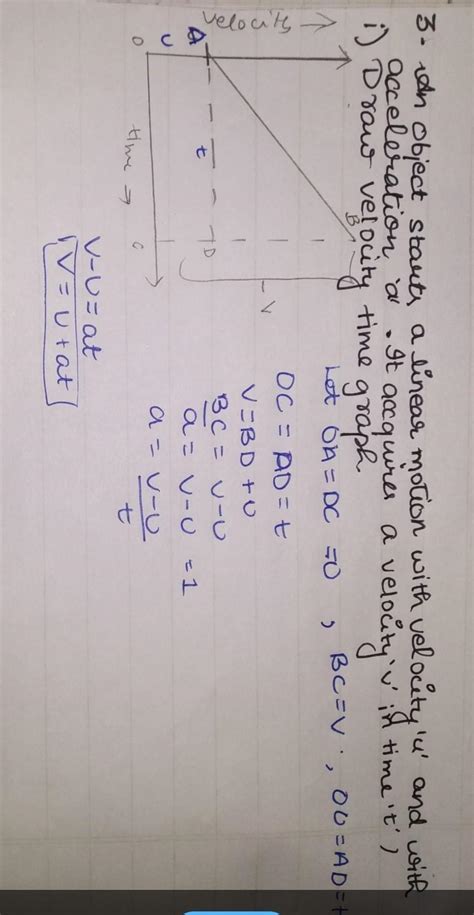 3. An object starts a linear motion with velocity 'u' and with
acceleration 'a'. It accquires a velocity 'v' in time 't',
i) Draw velocity time graph
velocity →
A
U
O
t
B
D
C
V
time →
Let OA = DC = U , BC = V , OC = AD = t
OC = AD = t
V = BD + U
BC = V - U
a = V - U = 1
a = V - U
t
V - U = at
V = U + at